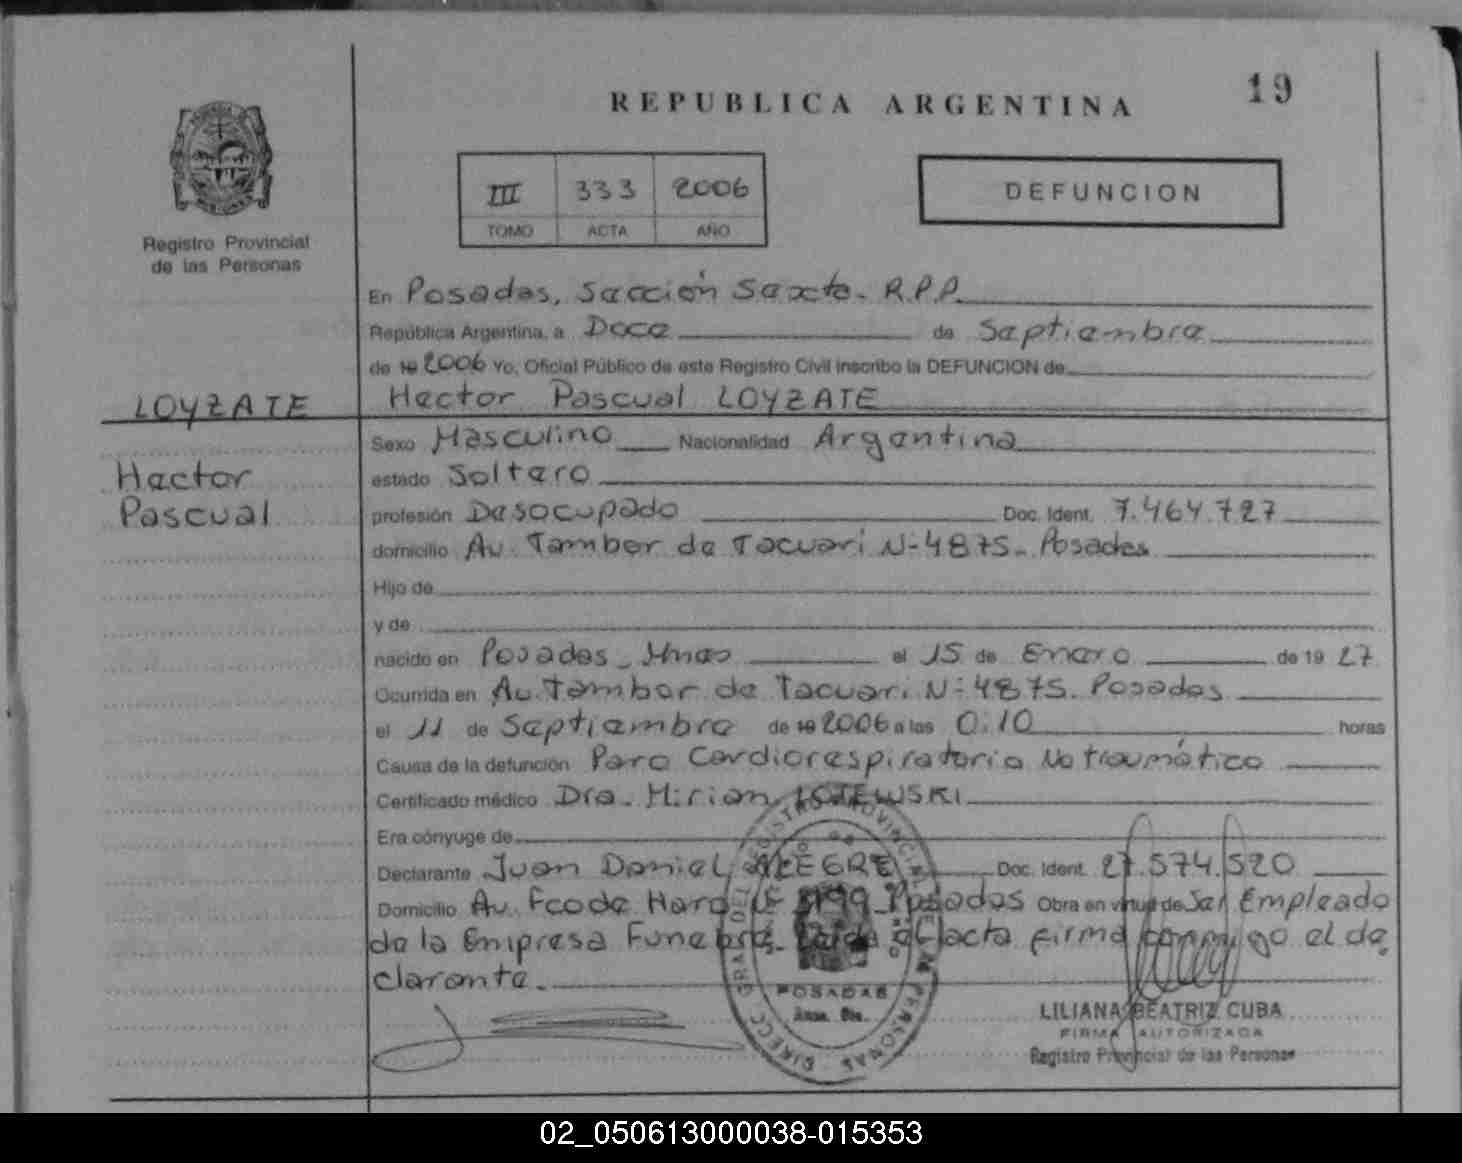 19
REPUBLICA ARGENTINA
III 333 2006
TOMO ACTA AÑO
DEFUNCION
Registro Provincial
de las Personas
En Posadas, Sección Sexta. R.P.P.
República Argentina, a Doce de Septiembre
de 19 2006 Yo, Oficial Público de este Registro Civil inscribo la DEFUNCION de
LOYZATE Hector Pascual LOYZATE
Sexo Masculino Nacionalidad Argentina
Hector estado Soltero
Pascual profesión Desocupado Doc. Ident. 7.464.727
domicilio Av. Tambor de Tacuari N-4875. Posadas
Hijo de
y de
nacido en Posadas, Mnes el 15 de Enero de 19 27
Ocurrida en Av. Tambor de Tacuari N-4875. Posadas
el 11 de Septiembre de 19 2006 a las 0:10 horas
Causa de la defunción Paro Cardiorespiratorio No traumático
Certificado médico Dra. Mirian
Era cónyuge de
Declarante Juan Daniel ALEGRE Doc. Ident. 27.574.520
Domicilio Av. Fco de Haro Posadas Obra en virtud de Ser Empleado
de la Empresa Funebre. Leida el acta firma conmigo el de
clarante.
POSADAS
LILIANA BEATRIZ CUBA
FIRMA AUTORIZADA
Registro Provincial de las Personas
02_050613000038-015353